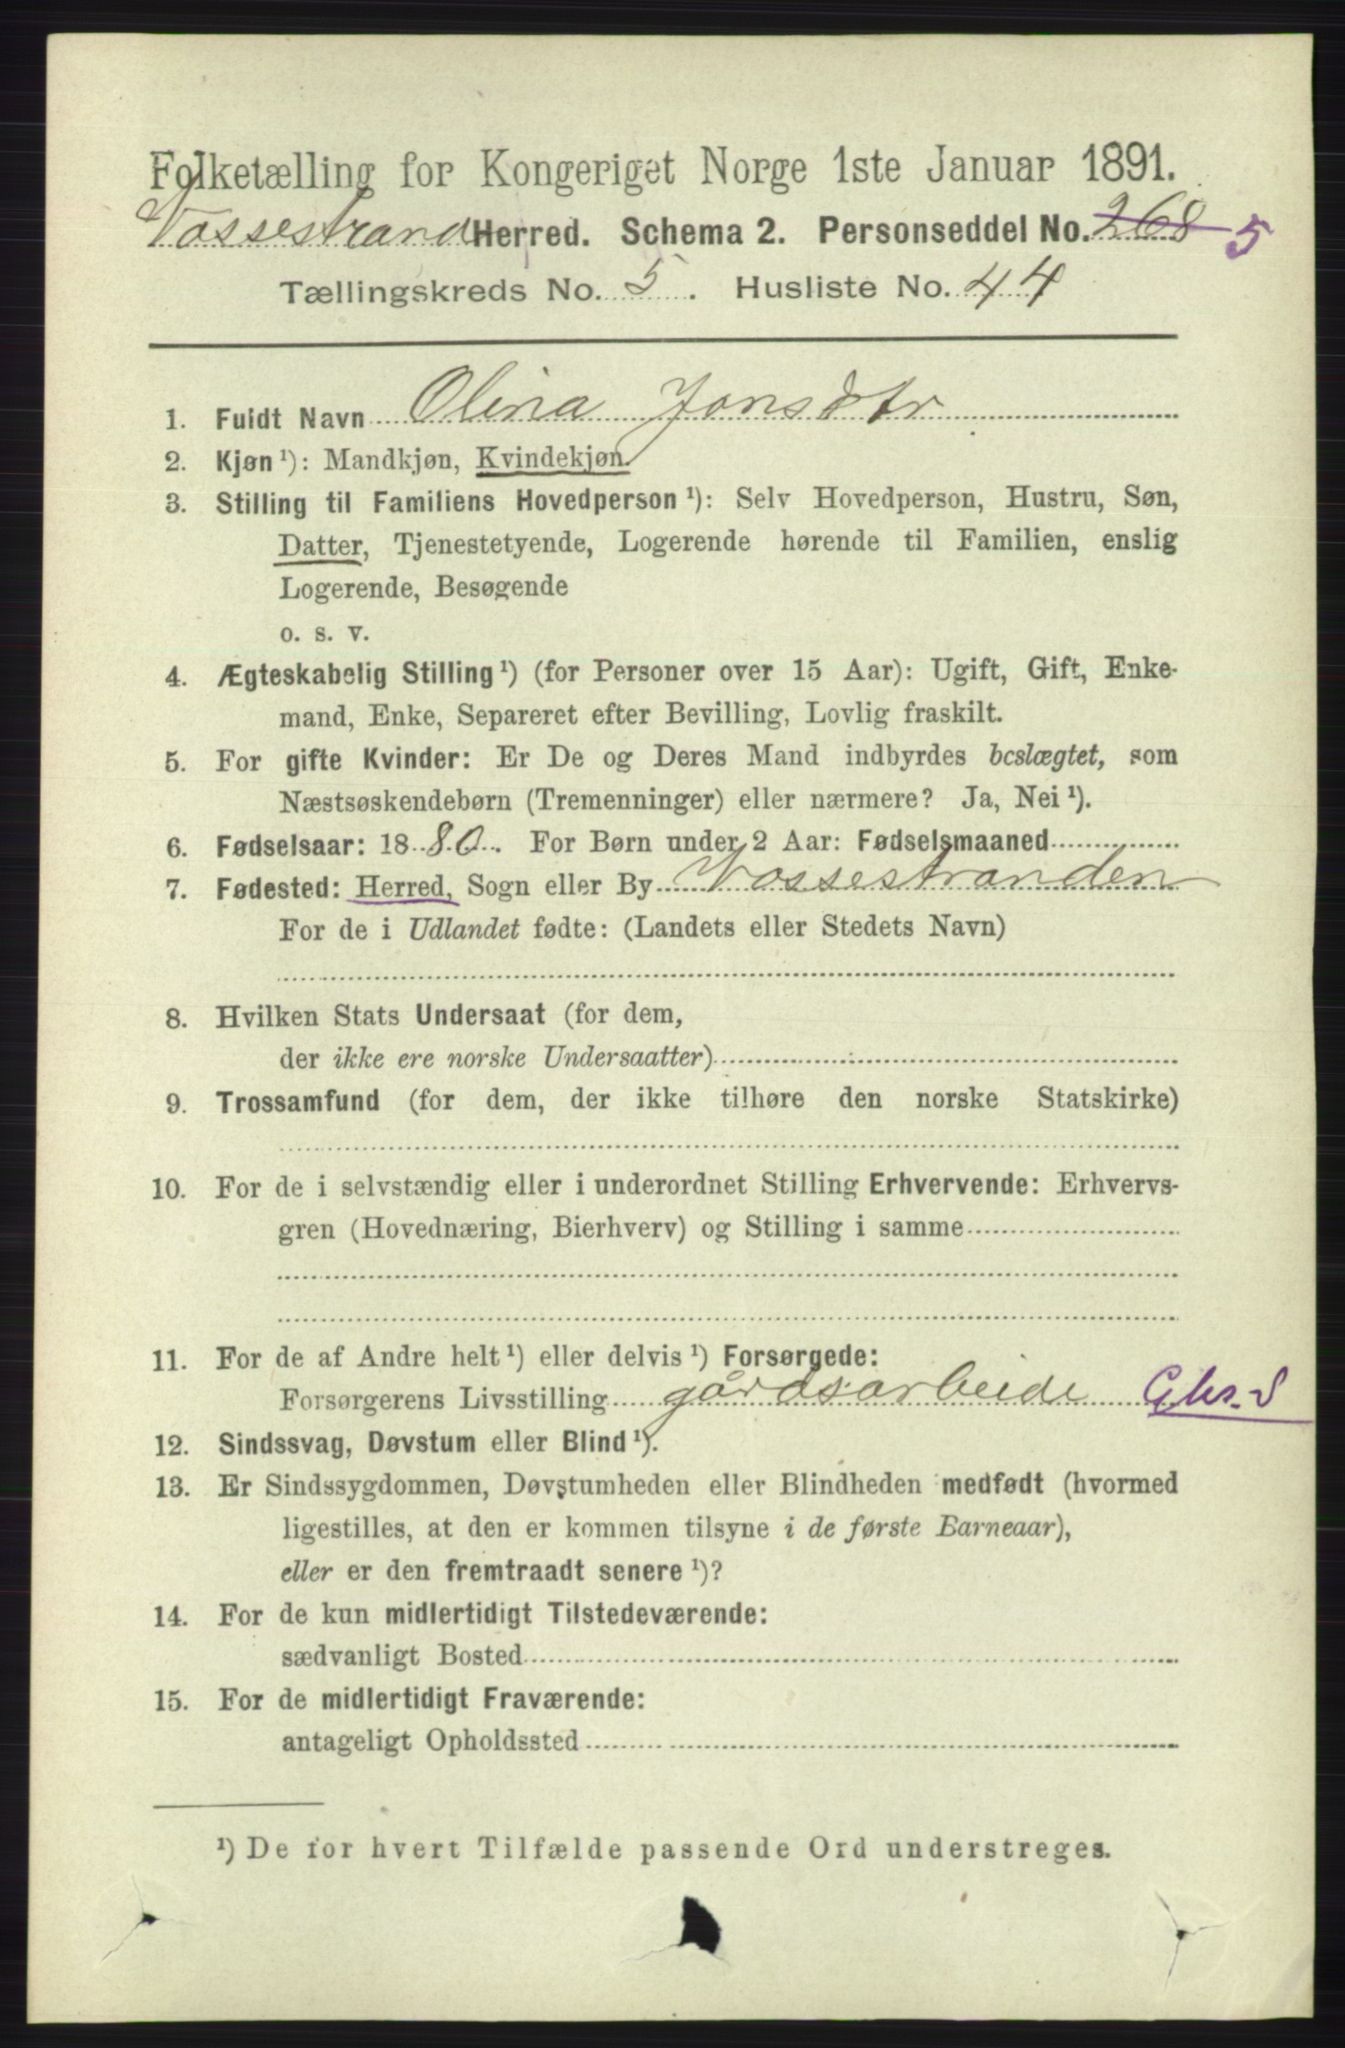 Folketælling for Kongeriget Norge 1ste Januar 1891.
Vossestrand Herred. Schema 2. Personseddel No. 268 5
Tællingskreds No. 5. Husliste No. 44
1. Fuldt Navn Olina Jonsdtr
2. Kjøn¹): Mandkjøn, Kvindekjøn.
3. Stilling til Familiens Hovedperson¹): Selv Hovedperson, Hustru, Søn,
Datter, Tjenestetyende, Logerende hørende til Familien, enslig
Logerende, Besøgende
o. s. v.
4. Ægteskabelig Stilling¹) (for Personer over 15 Aar): Ugift, Gift, Enke-
mand, Enke, Separeret efter Bevilling, Lovlig fraskilt.
5. For gifte Kvinder: Er De og Deres Mand indbyrdes beslægtet, som
Næstsøskendebørn (Tremenninger) eller nærmere? Ja, Nei¹).
6. Fødselsaar: 1880. For Børn under 2 Aar: Fødselsmaaned
7. Fødested: Herred, Sogn eller By Vossestranden
For de i Udlandet fødte: (Landets eller Stedets Navn)
8. Hvilken Stats Undersaat (for dem,
der ikke ere norske Undersaatter)
9. Trossamfund (for dem, der ikke tilhøre den norske Statskirke)
10. For de i selvstændig eller i underordnet Stilling Erhvervende: Erhvervs-
gren (Hovednæring, Bierhverv) og Stilling i samme
11. For de af Andre helt¹) eller delvis¹) Forsørgede:
Forsørgerens Livsstilling gårdsarbeide
12. Sindssvag, Døvstum eller Blind¹).
13. Er Sindssygdommen, Døvstumheden eller Blindheden medfødt (hvormed
ligestilles, at den er kommen tilsyne i de første Barneaar),
eller er den fremtraadt senere¹)?
14. For de kun midlertidigt Tilstedeværende:
sædvanligt Bosted
15. For de midlertidigt Fraværende:
antageligt Opholdssted
¹) De for hvert Tilfælde passende Ord understreges.